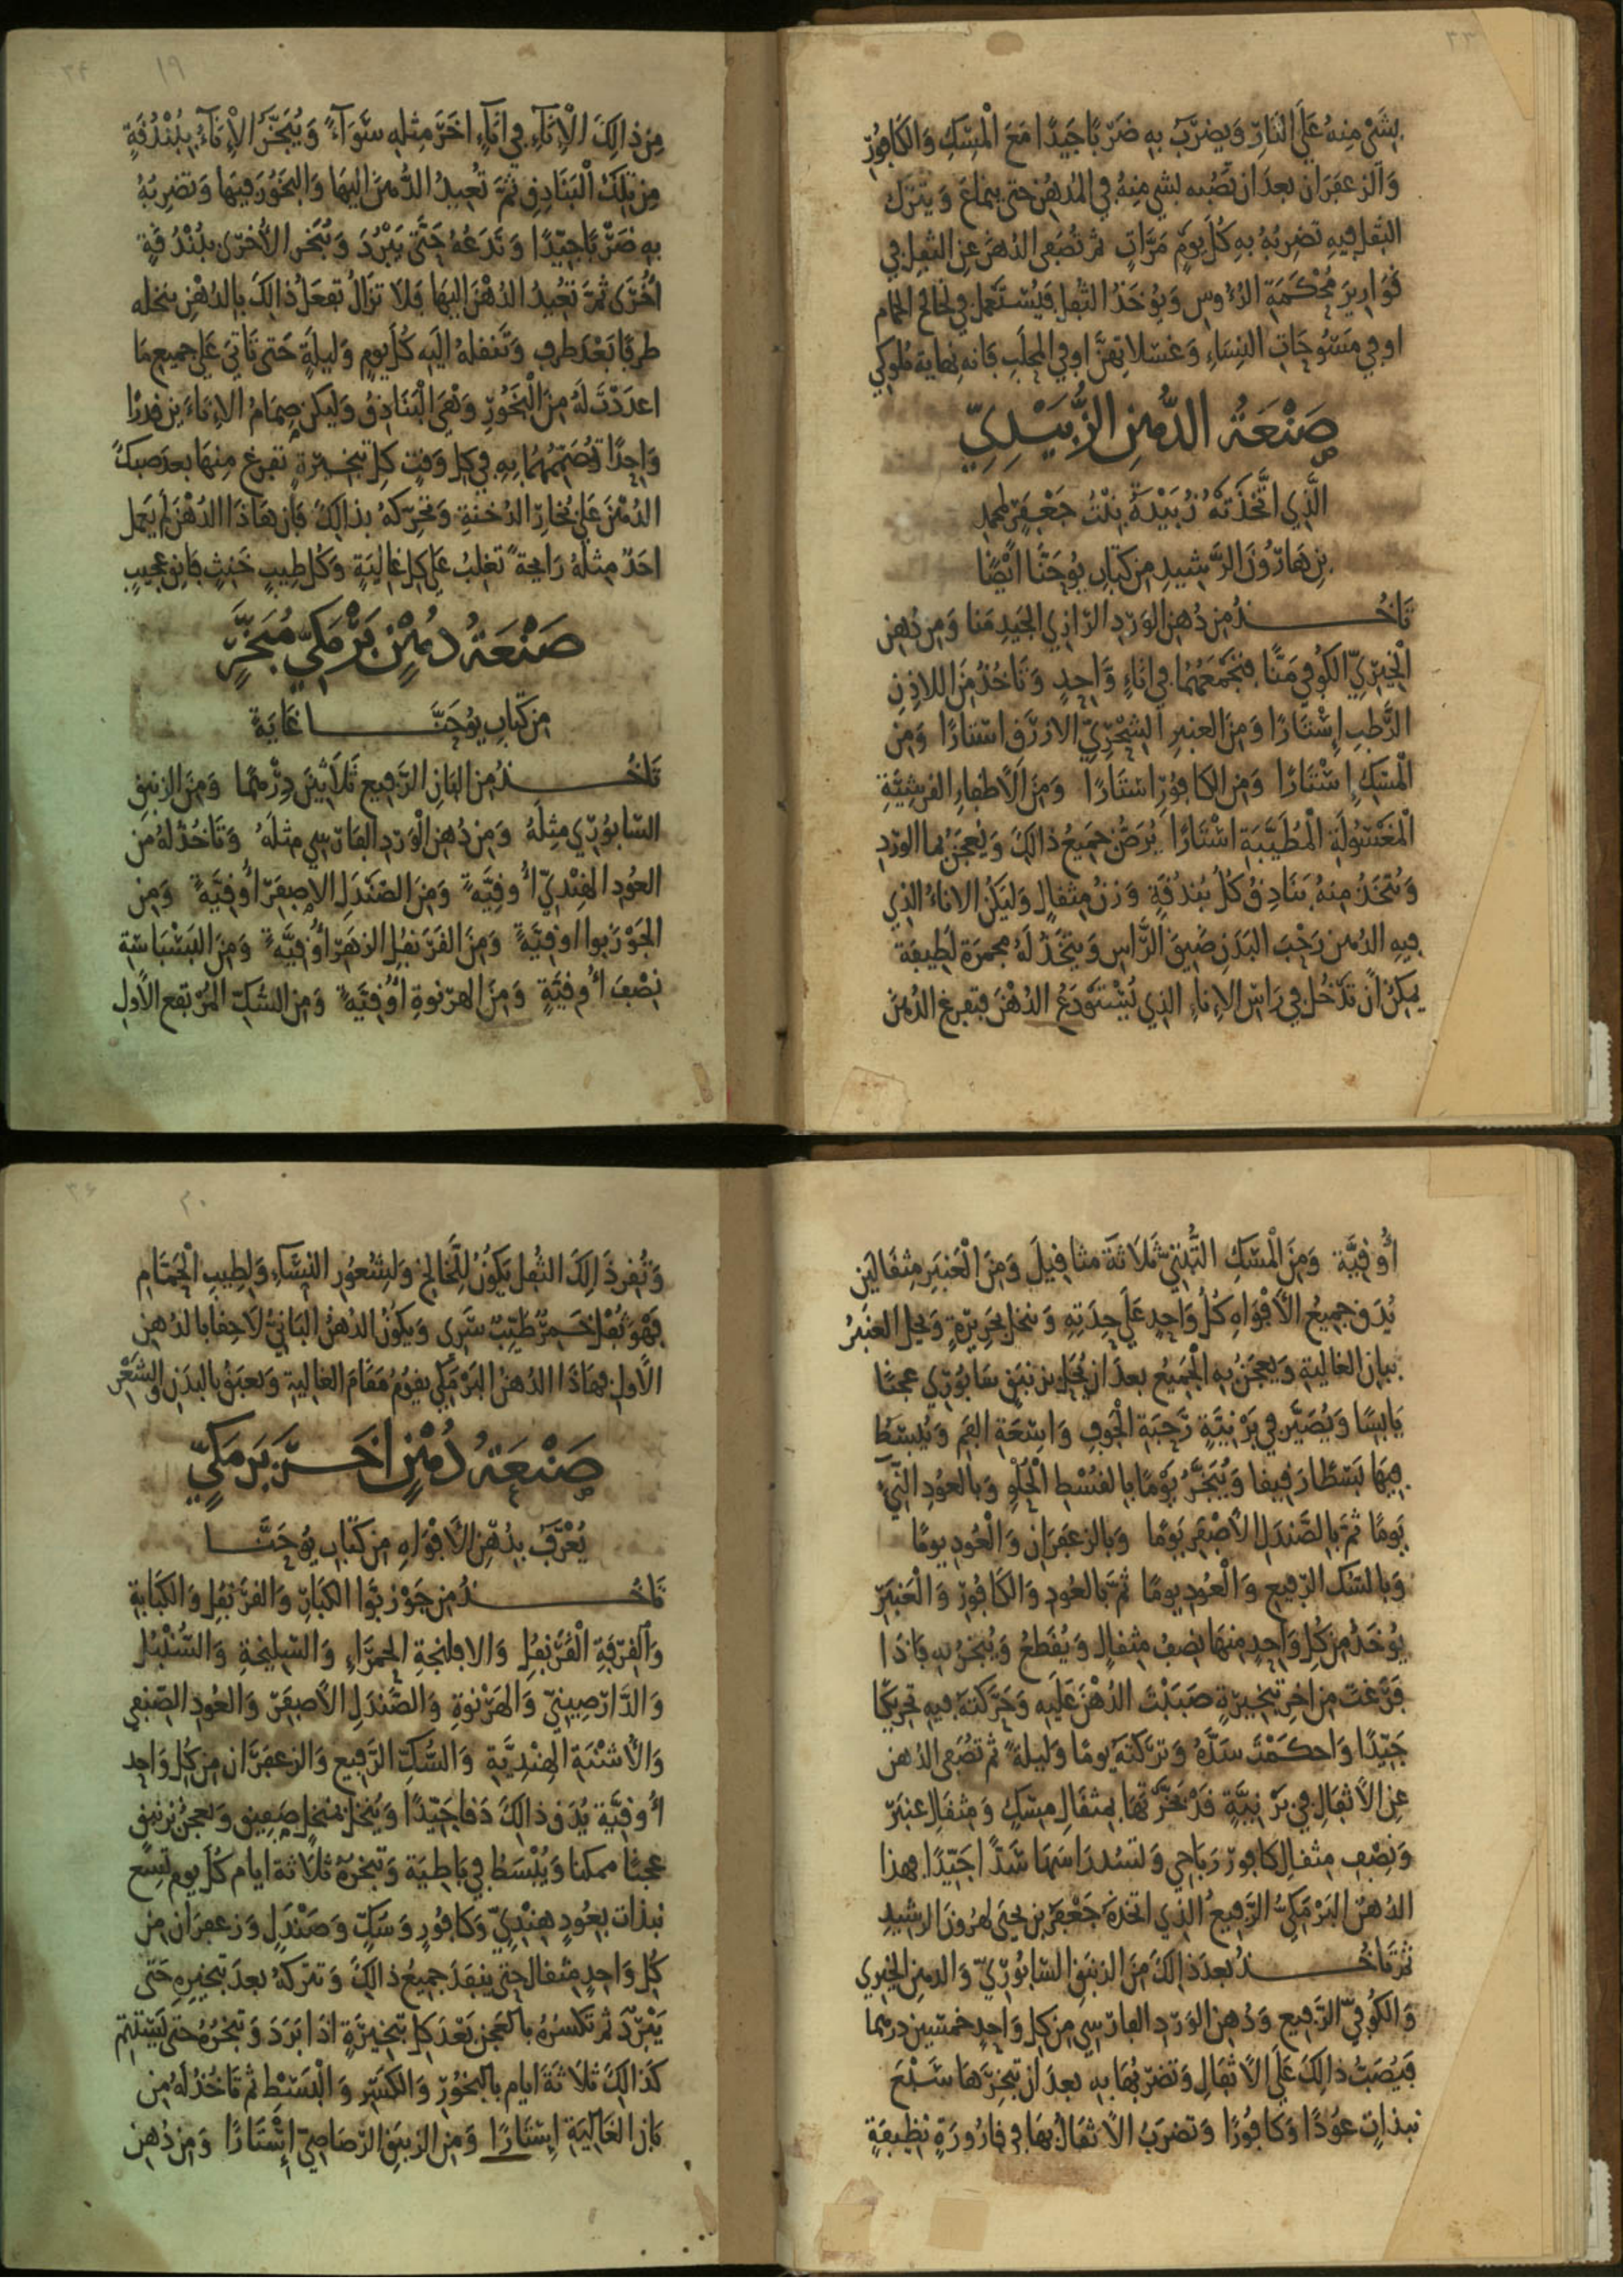 بشي منه على النار ويضرب به ضربا جيدا مع المسك والكافور
والزعفران بعد ان تصبه لشي منه في المدهن حتى ينماع ويترك
الثفل فيه تضربه به كل يوم مرات ثم تصفى الدهن عن الثفل في
قوارير محكمة الرؤوس ويؤخذ الثفل فيستعمل في لخالخ الحمام
او في مسوحات النساء وغسلاتهن او في المحلب فانه نهاية ملوكي
صنعة الدهن الزبيدي
الذي اتخذته زبيدة بنت جعفر لمحمد
بن هارون الرشيد من كتاب يوحنا ايضا
تاخذ من دهن الورد الرازي الجيد منا ومن دهن
الخيري الكوفي منا فتجمعهما في اناء واحد وتاخذ من اللاذن
الرطب إستارا ومن العنبر الشحري الازرق استارا ومن
المسك إستارا ومن الكافور استارا ومن الاظفار القرشية
المغسولة المطيبة استارا يرض جميع ذالك ويعجن بما الورد
وتتخذ منه بنادق كل بندقة وزن مثقال وليكن الاناء الذي
فيه الدهن رحب البدن ضيق الراس ويتخذ له مجمرة لطيفة
يمكن ان تدخل في راس الإناء الذي يستودع الدهن فتفرغ الدهن
١٩
من ذالك الإناء في اناء اخر مثله سواء ويبخر الإناء ببندقة
من تلك البنادق ثم تعيد الدهن اليها والبخور فيها وتضربه
به ضربا جيدا وتدعه حتى يبرد وتبخر الأخرى ببندقة
أخرى ثم تعيد الدهن اليها فلا تزال تفعل ذالك بالدهن تنخله
ظرفا بعد ظرف وتنقله اليه كل يوم وليلة حتى تاتي على جميع ما
اعددت له من البخور وهي البنادق وليكن صمام الإناءين قدرا
واحدا تصممهما به في كل وقت كل تبخيرة تفرغ منها بعد صبك
الدهن على بخار الدخنة وتحركه بذالك فان هاذا الدهن لم يعمل
احد مثله رايحة تغلب على كل غالية وكل طيب خنث فانه عجيب
صنعة دهن برمكي مبخر
من كتاب يوحنا غاية
تاخذ من البان الرفيع ثلاثين درهما ومن الزنبق
السابوري مثله ومن دهن الورد الفارسي مثله وتاخذ له من
العود الهندي أوقية ومن الصندل الاصفر أوقية ومن
الجوزبوا اوقية ومن القرنفل الزهر أوقية ومن البسباسة
نصف أوقية ومن الهرنوة أوقية ومن السك المرتفع الأول
أوقية ومن المسك التبتي ثلاثة مثاقيل ومن العنبر مثقالين
يدق جميع الأفواه كل واحد على حدته وتنخل بحريرة ويحل العنبر
ببان الغالية ويعجن به الجميع بعد ان يحل بزنبق سابوري عجنا
يابسا ويصير في برنية رحبة الجوف واسعة الفم ويبسط
فيها بسطا رقيقا ويبخر يوما بالقسط الحلو وبالعود الني
يوما ثم بالصندل الأصفر يوما وبالزعفران والعود يوما
وبالسك الرفيع والعود يوما ثم بالعود والكافور والعنبر
يوخذ من كل واحد منها نصف مثقال ويقطع ويبخر به فاذا
فرغت من اخر تبخيرة صببت الدهن عليه وحركته فيه تحريكا
جيدا واحكمت سده وتركته يوما وليلة ثم تصفى الدهن
عن الاثفال في برنية قد بخرتها بمثقال مسك ومثقال عنبر
ونصف مثقال كافور رباحي ولتسد راسها شدا جيدا فهذا
الدهن البرمكي الرفيع الذي اتخذه جعفر بن يحيى لهرون الرشيد
ثم تاخذ بعد ذالك من الزنبق السابوري والدهن الخيري
والكوفي الرفيع ودهن الورد الفارسي من كل واحد خمسين درهما
فيصب ذالك على الاثفال وتضربها به بعد ان تبخرها سبع
نبذات عودا وكافورا وتضرب الاثفال بها في قارورة نظيفة
٢٠
وتفرد ذالك الثفل يكون للخالخ ولشعور النساء ولطيب الحمام
فهو ثفل خمر طيب سري ويكون الدهن الثاني لاحقا بالدهن
الأول فهاذا الدهن البرمكي يقوم مقام الغالية ويعبق بالبدن والشعر
صنعة دهن اخر برمكي
يعرف بدهن الأفواه من كتاب يوحنا
تاخذ من جوزبوا الكبار والقرنفل والكبابة
والقرفة القرنفل والافلنجة الحمراء والسليخة والسنبل
والدارصيني والهرنوة والصندل الأصفر والعود الصنفي
والأشنة الهندية والسك الرفيع والزعفران من كل واحد
أوقية يدق ذالك دقا جيدا وينخل بمنخل صفيق ويعجن بزنبق
عجنا ممكنا ويبسط في باطية وتبخره ثلاثة ايام كل يوم تسع
نبذات بعود هندي وكافور وسك وصندل وزعفران من
كل واحد مثقال حتى ينفد جميع ذالك وتتركه بعد تبخيره حتى
يبرد ثم تكسره بالعجن بعد كل تبخيرة اذا برد وتبخره حتى يستتم
كذالك ثلاثة ايام بالبخور والكسر والبسط ثم تاخذ له من
بان الغالية إستارا ومن الزنبق الرصاصي إستارا ومن دهن